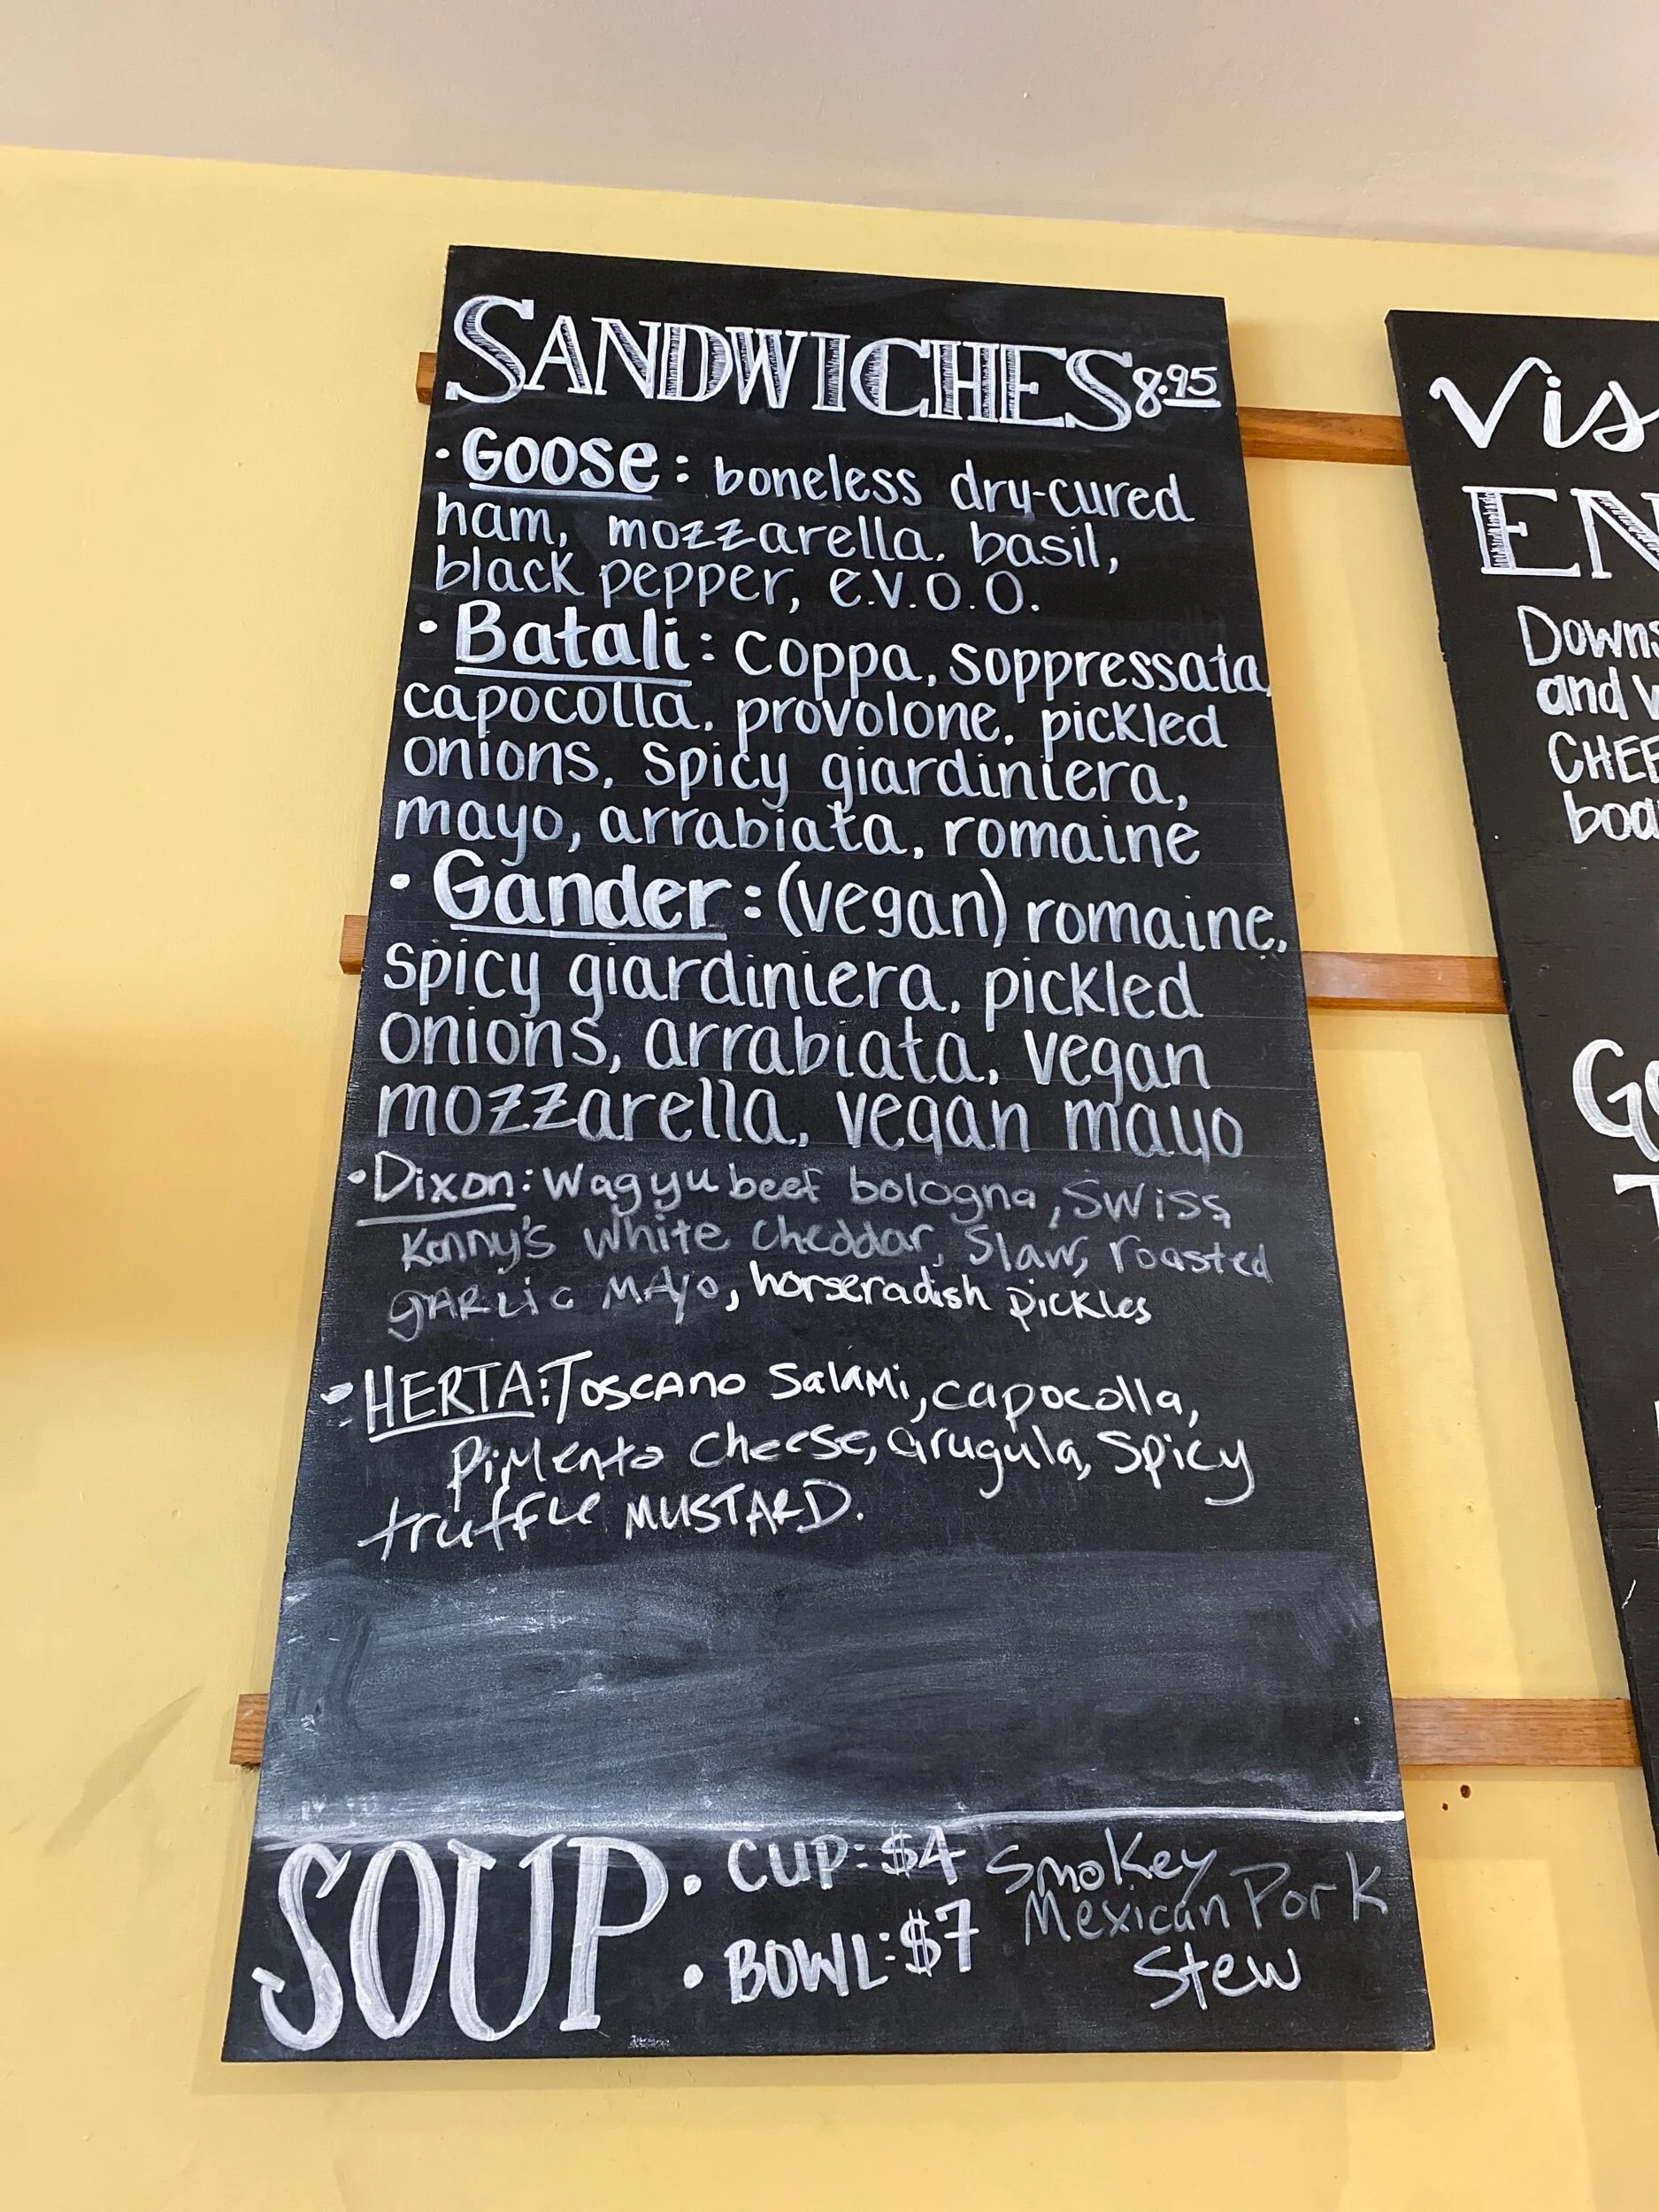 SANDWICHES 8.95
• GOOSE: boneless dry-cured
ham, mozzarella, basil,
black pepper, e.v.o.o.
• Batali: coppa, soppressata,
capocolla, provolone, pickled
onions, spicy giardiniera,
mayo, arrabiata, romaine
• Gander: (vegan) romaine,
spicy giardiniera, pickled
onions, arrabiata, vegan
mozzarella, vegan mayo
• Dixon: Wagyu beef bologna, SWiSS,
Kenny's white cheddar, Slaw, roasted
gARLic MAyo, horseradish pickles
• HERTA: TOSCANO SalaMi, capocolla,
PiMento cheese, arugula, Spicy
truffle MUSTARD.
SOUP
• CUP: $4
• BOWL: $7
Smokey
Mexican Pork
Stew
Vis
EN
Downs
and
CHEE
boa